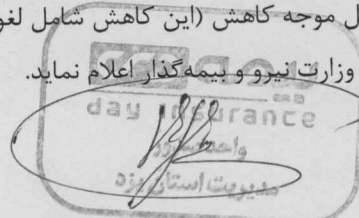 ل موجه کاهش (این کاهش شامل لغو
وزارت نیرو و بیمه‌گذار اعلام نماید.
بیمه دی
day insurance
واحد صدور
مدیریت استان یزد